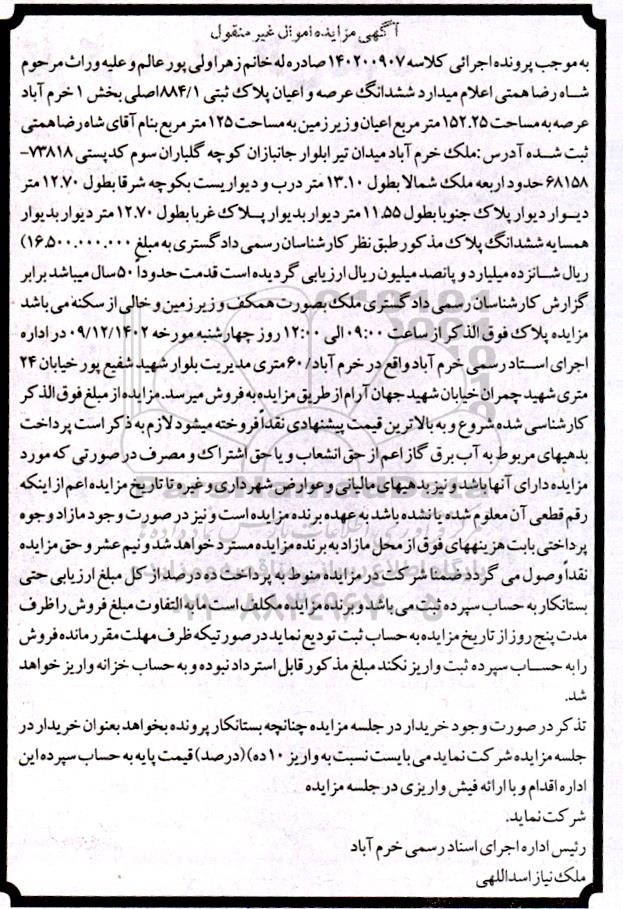 آگهی مزایده اموال غیر منقول
به موجب پرونده اجرائی کلاسه ۱۴۰۲۰۰۹۰۷ صادره له خانم زهرا ولی پور عالم و علیه وراث مرحوم
شاه رضا همتی اعلام میدارد ششدانگ عرصه و اعیان پلاک ثبتی ۸۸۴/۱ اصلی بخش ۱ خرم آباد
عرصه به مساحت ۱۵۲.۲۵ متر مربع اعیان و زیر زمین به مساحت ۱۲۵ متر مربع بنام آقای شاه رضا همتی
ثبت شده آدرس :ملک خرم آباد میدان تیر ابلوار جانبازان کوچه گلباران سوم کدپستی ۷۳۸۱۸-
۶۸۱۵۸ حدود اربعه ملک شمالا بطول ۱۳.۱۰ متر درب و دیواریست بکوچه شرقا بطول ۱۲.۷۰ متر
دیوار دیوار پلاک جنوبا بطول ۱۱.۵۵ متر دیوار بدیوار پلاک غربا بطول ۱۲.۷۰ متر دیوار بدیوار
همسایه ششدانگ پلاک مذکور طبق نظر کارشناسان رسمی دادگستری به مبلغ ۱۶.۵۰۰.۰۰۰.۰۰۰)
ریال شانزده میلیارد و پانصد میلیون ریال ارزیابی گردیده است قدمت حدودا ۵۰ سال میباشد برابر
گزارش کارشناسان رسمی دادگستری ملک بصورت همکف و زیر زمین و خالی از سکنه می باشد
مزایده پلاک فوق الذکر از ساعت ۰۹:۰۰ الی ۱۲:۰۰ روز چهارشنبه مورخه ۰۹/۱۲/۱۴۰۲ در اداره
اجرای اسناد رسمی خرم آباد واقع در خرم آباد/ ۶۰ متری مدیریت بلوار شهید شفیع پور خیابان ۲۴
متری شهید چمران خیابان شهید جهان آرام از طریق مزایده به فروش میرسد.مزایده از مبلغ فوق الذکر
کارشناسی شده شروع و به بالاترین قیمت پیشنهادی نقداً فروخته میشود لازم به ذکر است پرداخت
بدهیهای مربوط به آب برق گاز اعم از حق انشعاب و یا حق اشتراک و مصرف در صورتی که مورد
مزایده دارای آنها باشد و نیز بدهیهای مالیاتی و عوارض شهرداری و غیره تا تاریخ مزایده اعم از اینکه
رقم قطعی آن معلوم شده یا نشده باشد به عهده برنده مزایده است و نیز در صورت وجود مازاد وجوه
پرداختی بابت هزینههای فوق از محل مازاد به برنده مزایده مسترد خواهد شد و نیم عشر و حق مزایده
نقداً وصول می گردد ضمنا شرکت در مزایده منوط به پرداخت ده درصد از کل مبلغ ارزیابی حتی
بستانکار به حساب سپرده ثبت می باشد و برنده مزایده مکلف است مابه التفاوت مبلغ فروش را ظرف
مدت پنج روز از تاریخ مزایده به حساب ثبت تودیع نماید در صورتیکه ظرف مهلت مقرر مانده فروش
را به حساب سپرده ثبت واریز نکند مبلغ مذکور قابل استرداد نبوده و به حساب خزانه واریز خواهد
شد.
تذکر در صورت وجود خریدار در جلسه مزایده چنانچه بستانکار پرونده بخواهد بعنوان خریدار در
جلسه مزایده شرکت نماید می بایست نسبت به واریز ۱۰ ده)(درصد) قیمت پایه به حساب سپرده این
اداره اقدام و با ارائه فیش واریزی در جلسه مزایده
شرکت نماید.
رئیس اداره اجرای اسناد رسمی خرم آباد
ملک نیاز اسداللهی